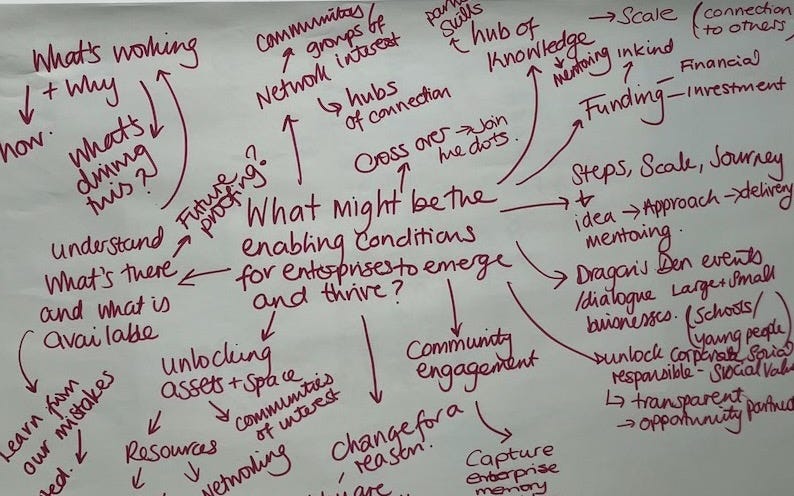 What's working
+ why
how.
What's
driving
this?
Future
proofing?
communities/
groups of
Network interest
hubs
of connection
Cross over → Join
the dots.
skills
hub of
Knowledge
Mentoring
→ Scale (connection
to others)
inkind
Funding
Financial
investment
What might be the
enabling conditions
for enterprises to emerge
and thrive?
understand
What's there
and what is
available
Learn from
our mistakes
Steps, Scale, Journey
idea → Approach → delivery
mentoring.
Dragons Den events
/dialogue Large + Small
businesses. (Schools/
young people)
unlock Corporate Social
responsible - Social Value
↳ transparent
→ opportunity
unlocking
assets + space
communities
of interest
Resources
Networking
Change for a
reason.
Community
engagement
Capture
enterprise
memory